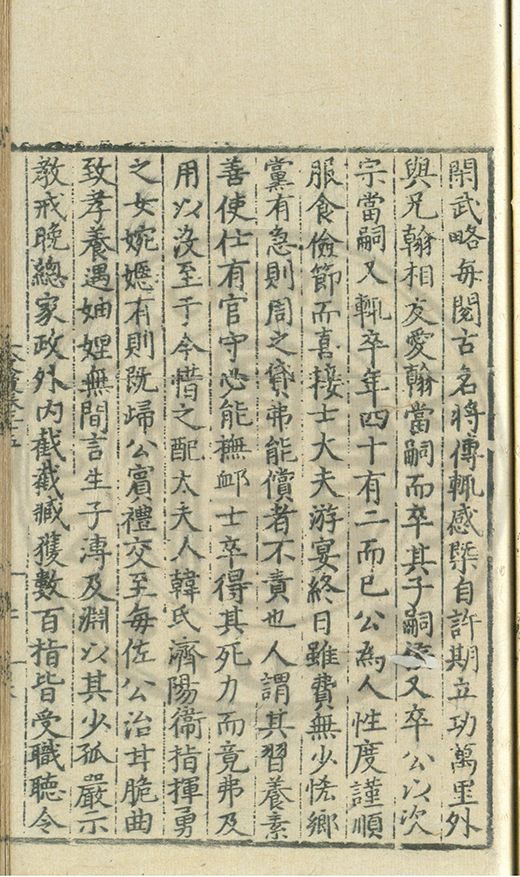 閑武略每閱古名將傳輒感槩自許期立功萬里外
與兄翰相友愛翰當嗣而卒其子嗣又卒公以次
宗當嗣又輒卒年四十有二而已公為人性度謹順
服食儉節而喜接士大夫游宴終日雖費無少恡鄉
黨有急則周之貸弗能償者不責也人謂其習養素
善使仕有官守必能撫卹士卒得其死力而竟弗及
用以沒至于今惜之配太夫人韓氏濟陽衞指揮勇
之女婉嬺有則既歸公賓禮交至每佐公治甘脆曲
致孝養遇妯娌無間言生子溥及淵以其少孤嚴示
教戒晚總家政外內截截臧獲數百指皆受職聽令